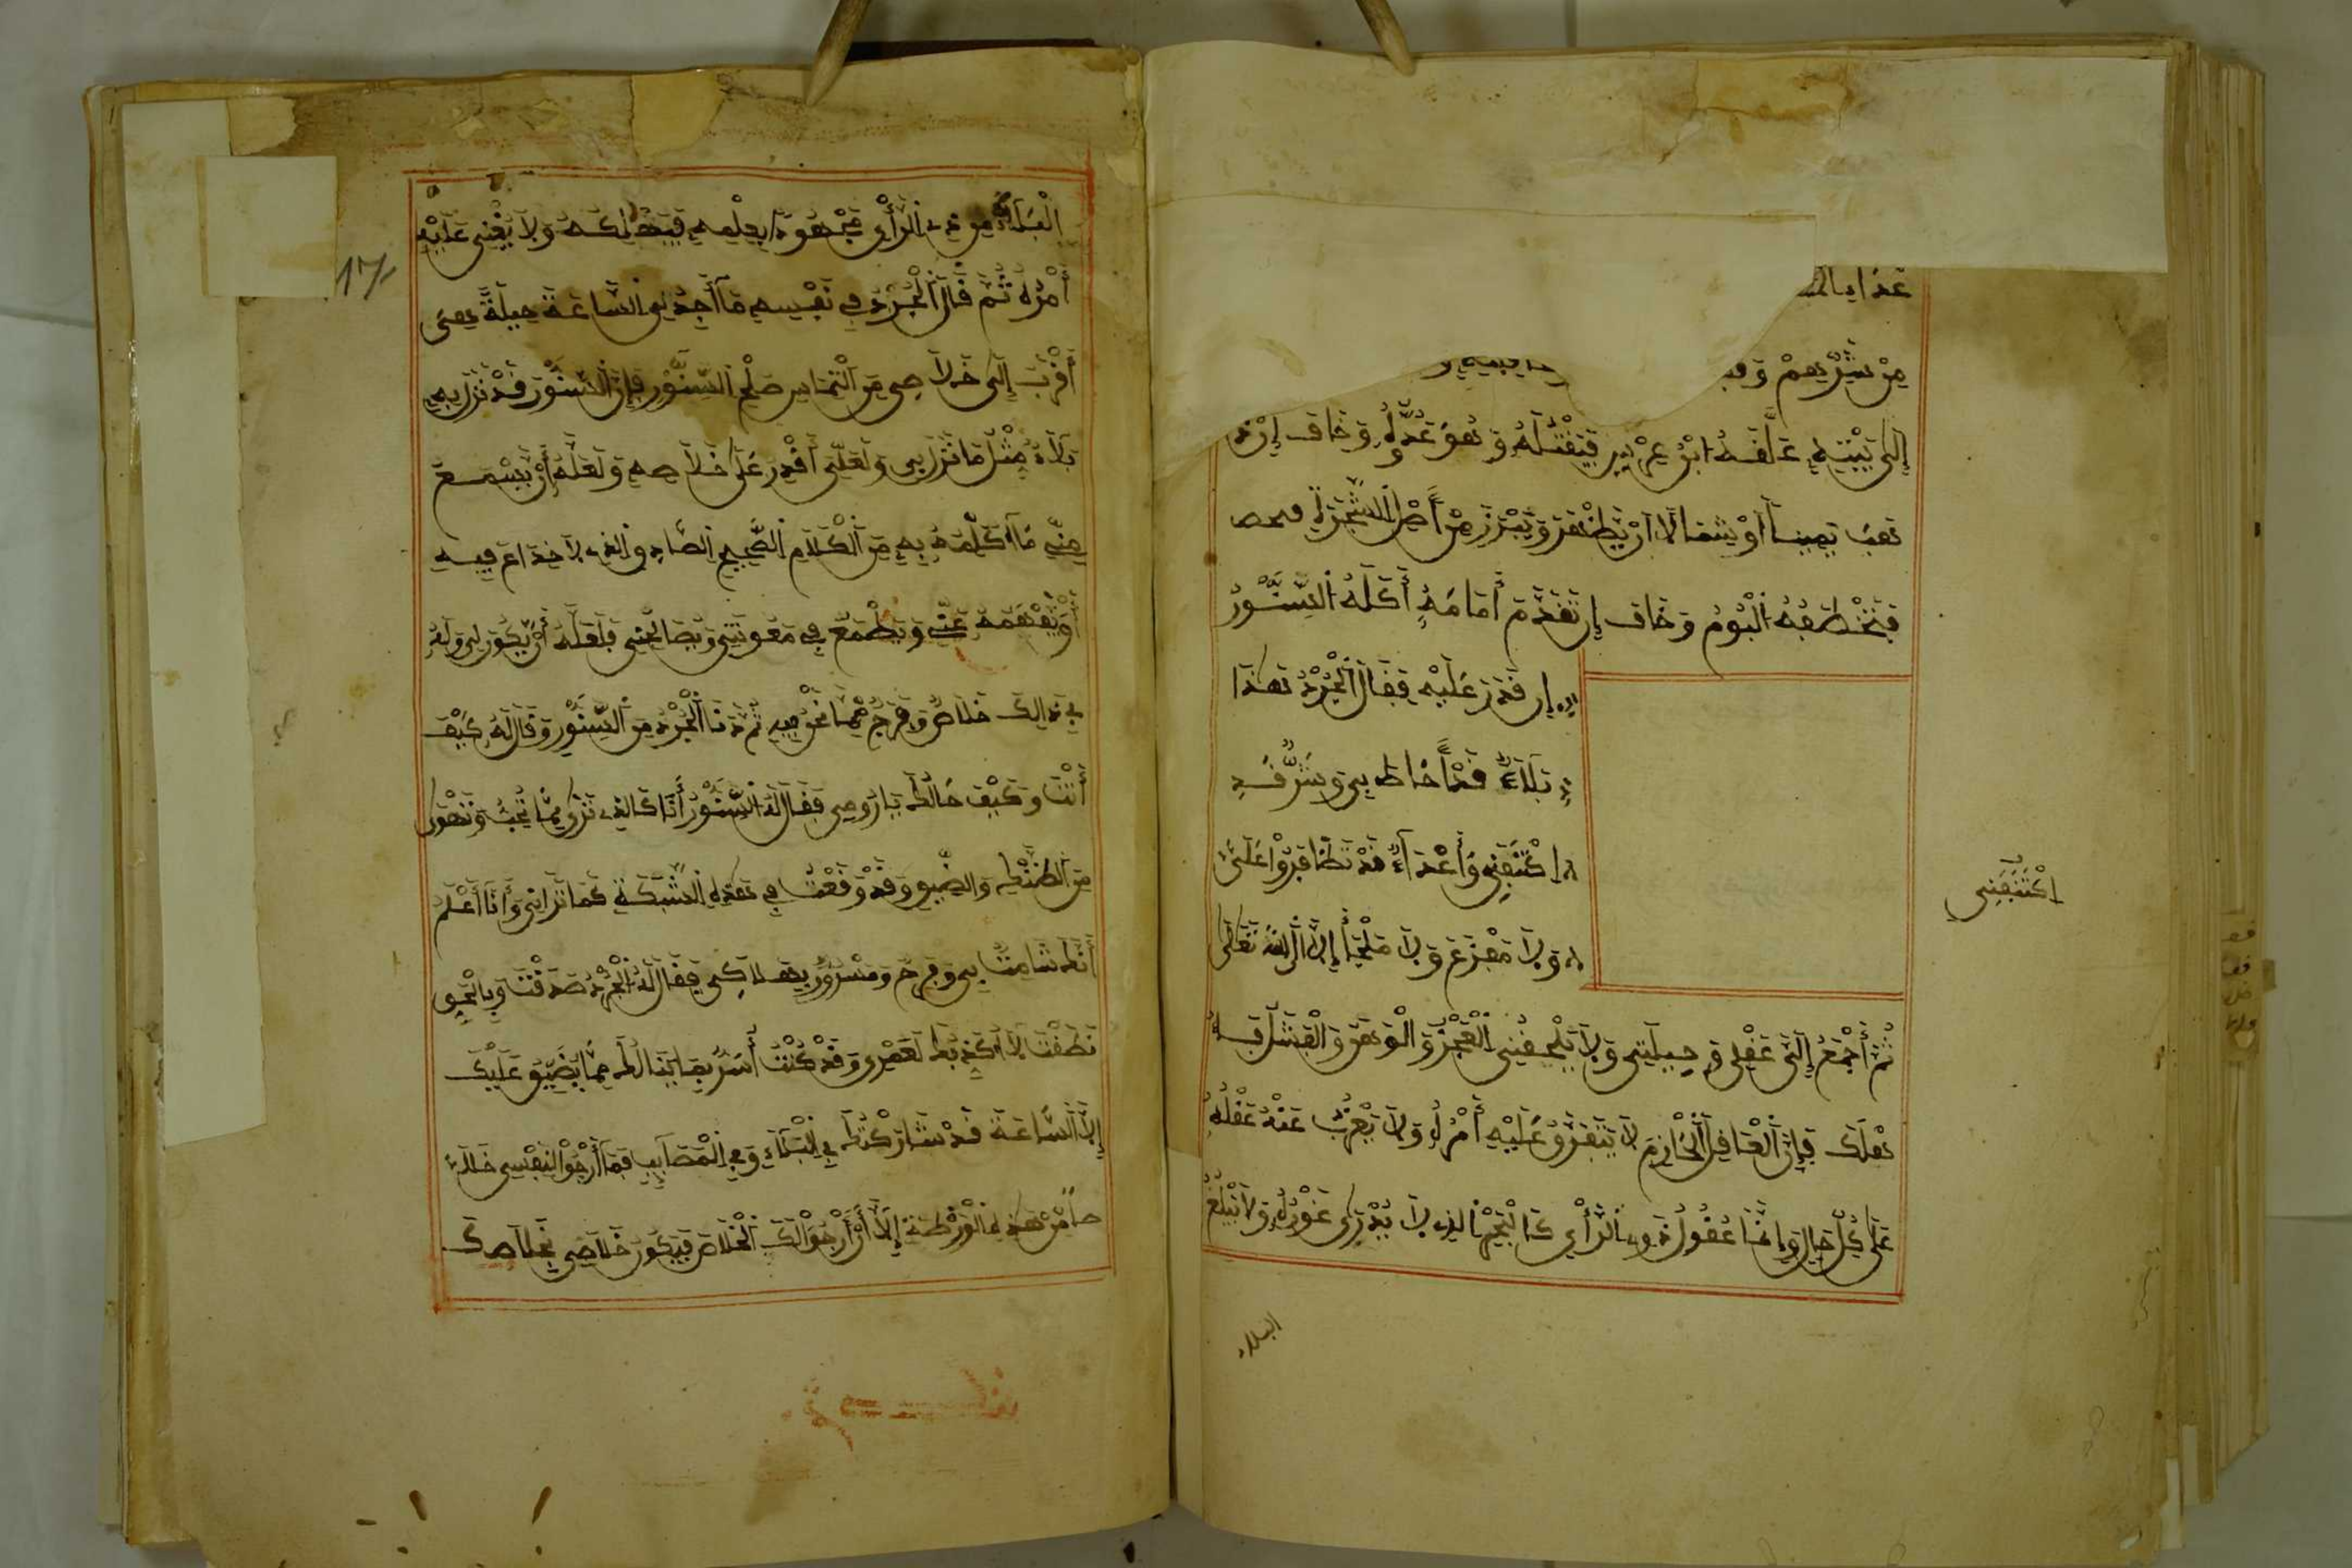 عدا
من شرهم و
إِلَى بَيْتِهِ عَلَّقَهُ ابْنُ عِرْسٍ فَيَقْتُلَهُ وَهُوَ عَدُوُّهُ وَخَافَ إِنْ ذ
هَبَ يَمِينًا أَوْ شمالا أَنْ يَظْهَرَ وَيَبْرُزَ مِنْ أَصْلِ الشَّجَرَةِ
فَتَخْطَفُهُ الْبُومُ وَخَافَ إِن تَقَدَّمَ أَمَامَهُ أَكَلَهُ السِّنَّوْرُ
إن قَدَرَ عَلَيْهِ فَقَالَ الْجُرَذُ هَذَا
بَلَاءٌ قَدْ أَحَاطَ بِي وَشَرٌّ قَدِ
اكْتَنَفَنِي وَأَعْدَاءٌ قَدْ تَظَافَرُوا عَلَيَّ
وَلَا مَفْزَعَ وَلَا مَلْجَأَ إِلَّا إِلَى اللَّهِ تَعَالَى
ثُمَّ أَرْجِعُ إِلَى عَقْلِي وَحِيلَتِي وَلَا يَلْحَقُنِي الْعَجْزُ وَالْوَهَنُ وَالْفَشَلُ قَبْلَهُ
هَلَكَ فَإِنَّ الْعَاقِلَ الْحَازِمَ لَا يَتَفَرَّقُ عَلَيْهِ أَمْرُهُ وَلَا يَعْزُبُ عَنْهُ عَقْلُهُ
عَلَى كُلِّ حَالٍ وَإِنَّمَا عُقُولُ ذَوِي الرَّأْيِ كَالْبَحْرِ الَّذِي لَا يُدْرَى غَوْرُهُ وَلَا يَبْلُغُ
البلاء
اكْتَنَفَنِي
17
الْبَلَاءُ مِنْ ذِي الرَّأْيِ مَجْهُودَ عِلْمِهِ فَيُهْلِكَهُ وَلَا يَخْفَى عَلَيْهِ
أَمْرُهُ ثُمَّ قَالَ الْجُرَذُ فِي نَفْسِهِ مَا أَجِدُ لِي السَّاعَةَ حِيلَةً هِيَ
أَقْرَبُ إِلَى خَلَاصِي مِنَ الْتِمَاسِ صُلْحِ السِّنَّوْرِ فَإِنَّ السِّنَّوْرَ قَدْ نَزَلَ بِهِ
بَلَاءٌ مِثْلُ مَا نَزَلَ بِي وَلَعَلِّي أَقْدِرُ عَلَى خَلَاصِهِ وَلَعَلَّهُ أَنْ يَسْمَعَ
مِنِّي مَا أُكَلِّمُهُ بِهِ مِنَ الْكَلَامِ الصَّحِيحِ الصَّادِقِ الَّذِي لَا خِدَاعَ فِيهِ
وَيَفْهَمَهُ عَنِّي وَيَطْمَعَ فِي مَعُونَتِي وَيُصَالِحَنِي فَلَعَلَّهُ أَنْ يَكُونَ لِي وَلَهُ
فِي ذَالِكَ خَلَاصٌ وَفَرَجٌ مِمَّا نَحْنُ فِيهِ ثُمَّ دَنَا الْجُرَذُ مِنَ السِّنَّوْرِ وَقَالَ لَهُ كَيْفَ
أَنْتَ وَكَيْفَ حَالُكَ يَا رُومِي فَقَالَ لَهُ السِّنَّوْرُ أَنَا كَالَّذِي تَرَى مِمَّا تُحِبُّ وَتَهْوَى
مِنَ الضَّنْكِ وَالضِّيقِ وَقَدْ وَقَعْتُ فِي هَذِهِ الشَّبَكَةِ كَمَا تَرَانِي وَأَنَا أَعْلَمُ
أَنَّكَ شَامِتٌ بِي وَفَرِحٌ وَمَسْرُورٌ بِهَلَاكِي فَقَالَ لَهُ الْجُرَذُ صَدَقْتَ وَبِالْحَقِّ
نَطَقْتَ لَا أُكَذِّبُكَ لَعَمْرِي وَقَدْ كُنْتُ أُسَرُّ بِمَا يَنَالُكَ مِمَّا يُضَيِّقُ عَلَيْكَ
إِلَّا السَّاعَةَ قَدْ شَارَكْتُكَ فِي الْبَلَاءِ وَفِي الْمَصَايِبِ فَمَا أَرْجُوا لِنَفْسِي خَلَا
صًا مِنْ هَذِهِ الْوَرْطَةِ إِلَّا أَنْ أَرْجُوَا لَكَ الْخَلَاصَ فَيَكُونُ خَلَاصِي بِخَلَاصِكَ